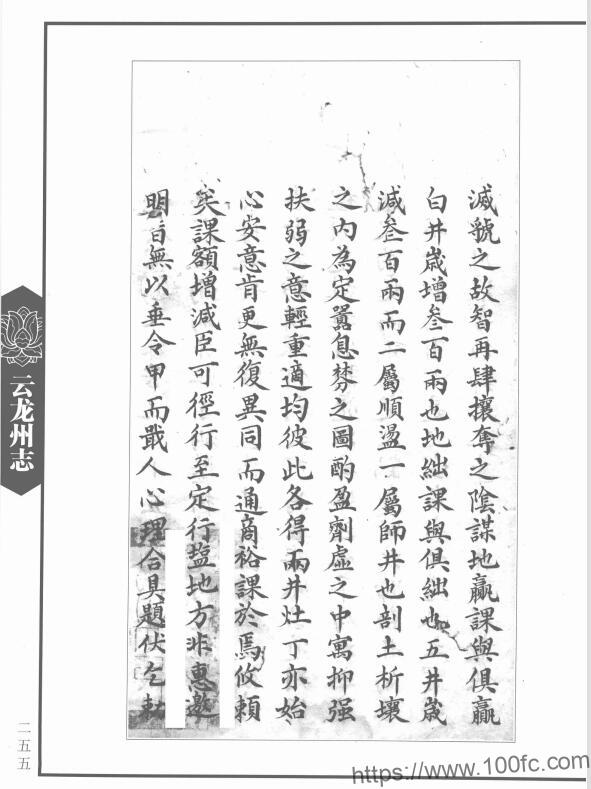 滅虢之故智再肆攘奪之陰謀地贏課與俱贏
白井歲增叁百兩也地絀課與俱絀也五井歲
減叁百兩而二屬順盪一屬師井也剖土析壤
之內為定囂息棼之圖酌盈劑虛之中寓抑强
扶弱之意輕重適均彼此各得兩井灶丁亦始
心安意肯更無復異同而通商裕課於焉攸賴
矣課額增減臣可徑行至定行塩地方非惠邀
明旨無以垂令甲而戢人心理合具題伏乞勅
云龙州志
二五五
https://www.100fc.com